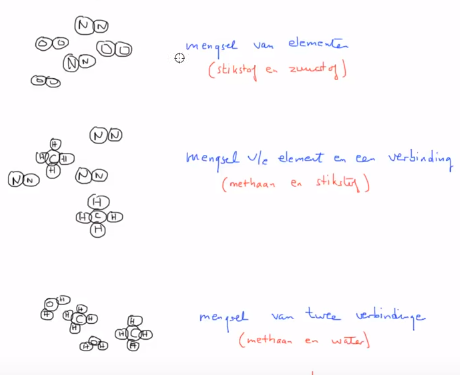 N N
O O
O O
N N
O O
mengsel van elementen
(stikstof en zuurstof)
N N
H
H C H
H
N N
N N
H
H C H
H
mengsel v/e element en een verbinding
(methaan en stikstof)
O H
H
H
C H
H
H O H
H
H C H
H
mengsel van twee verbindinge
(methaan en water)